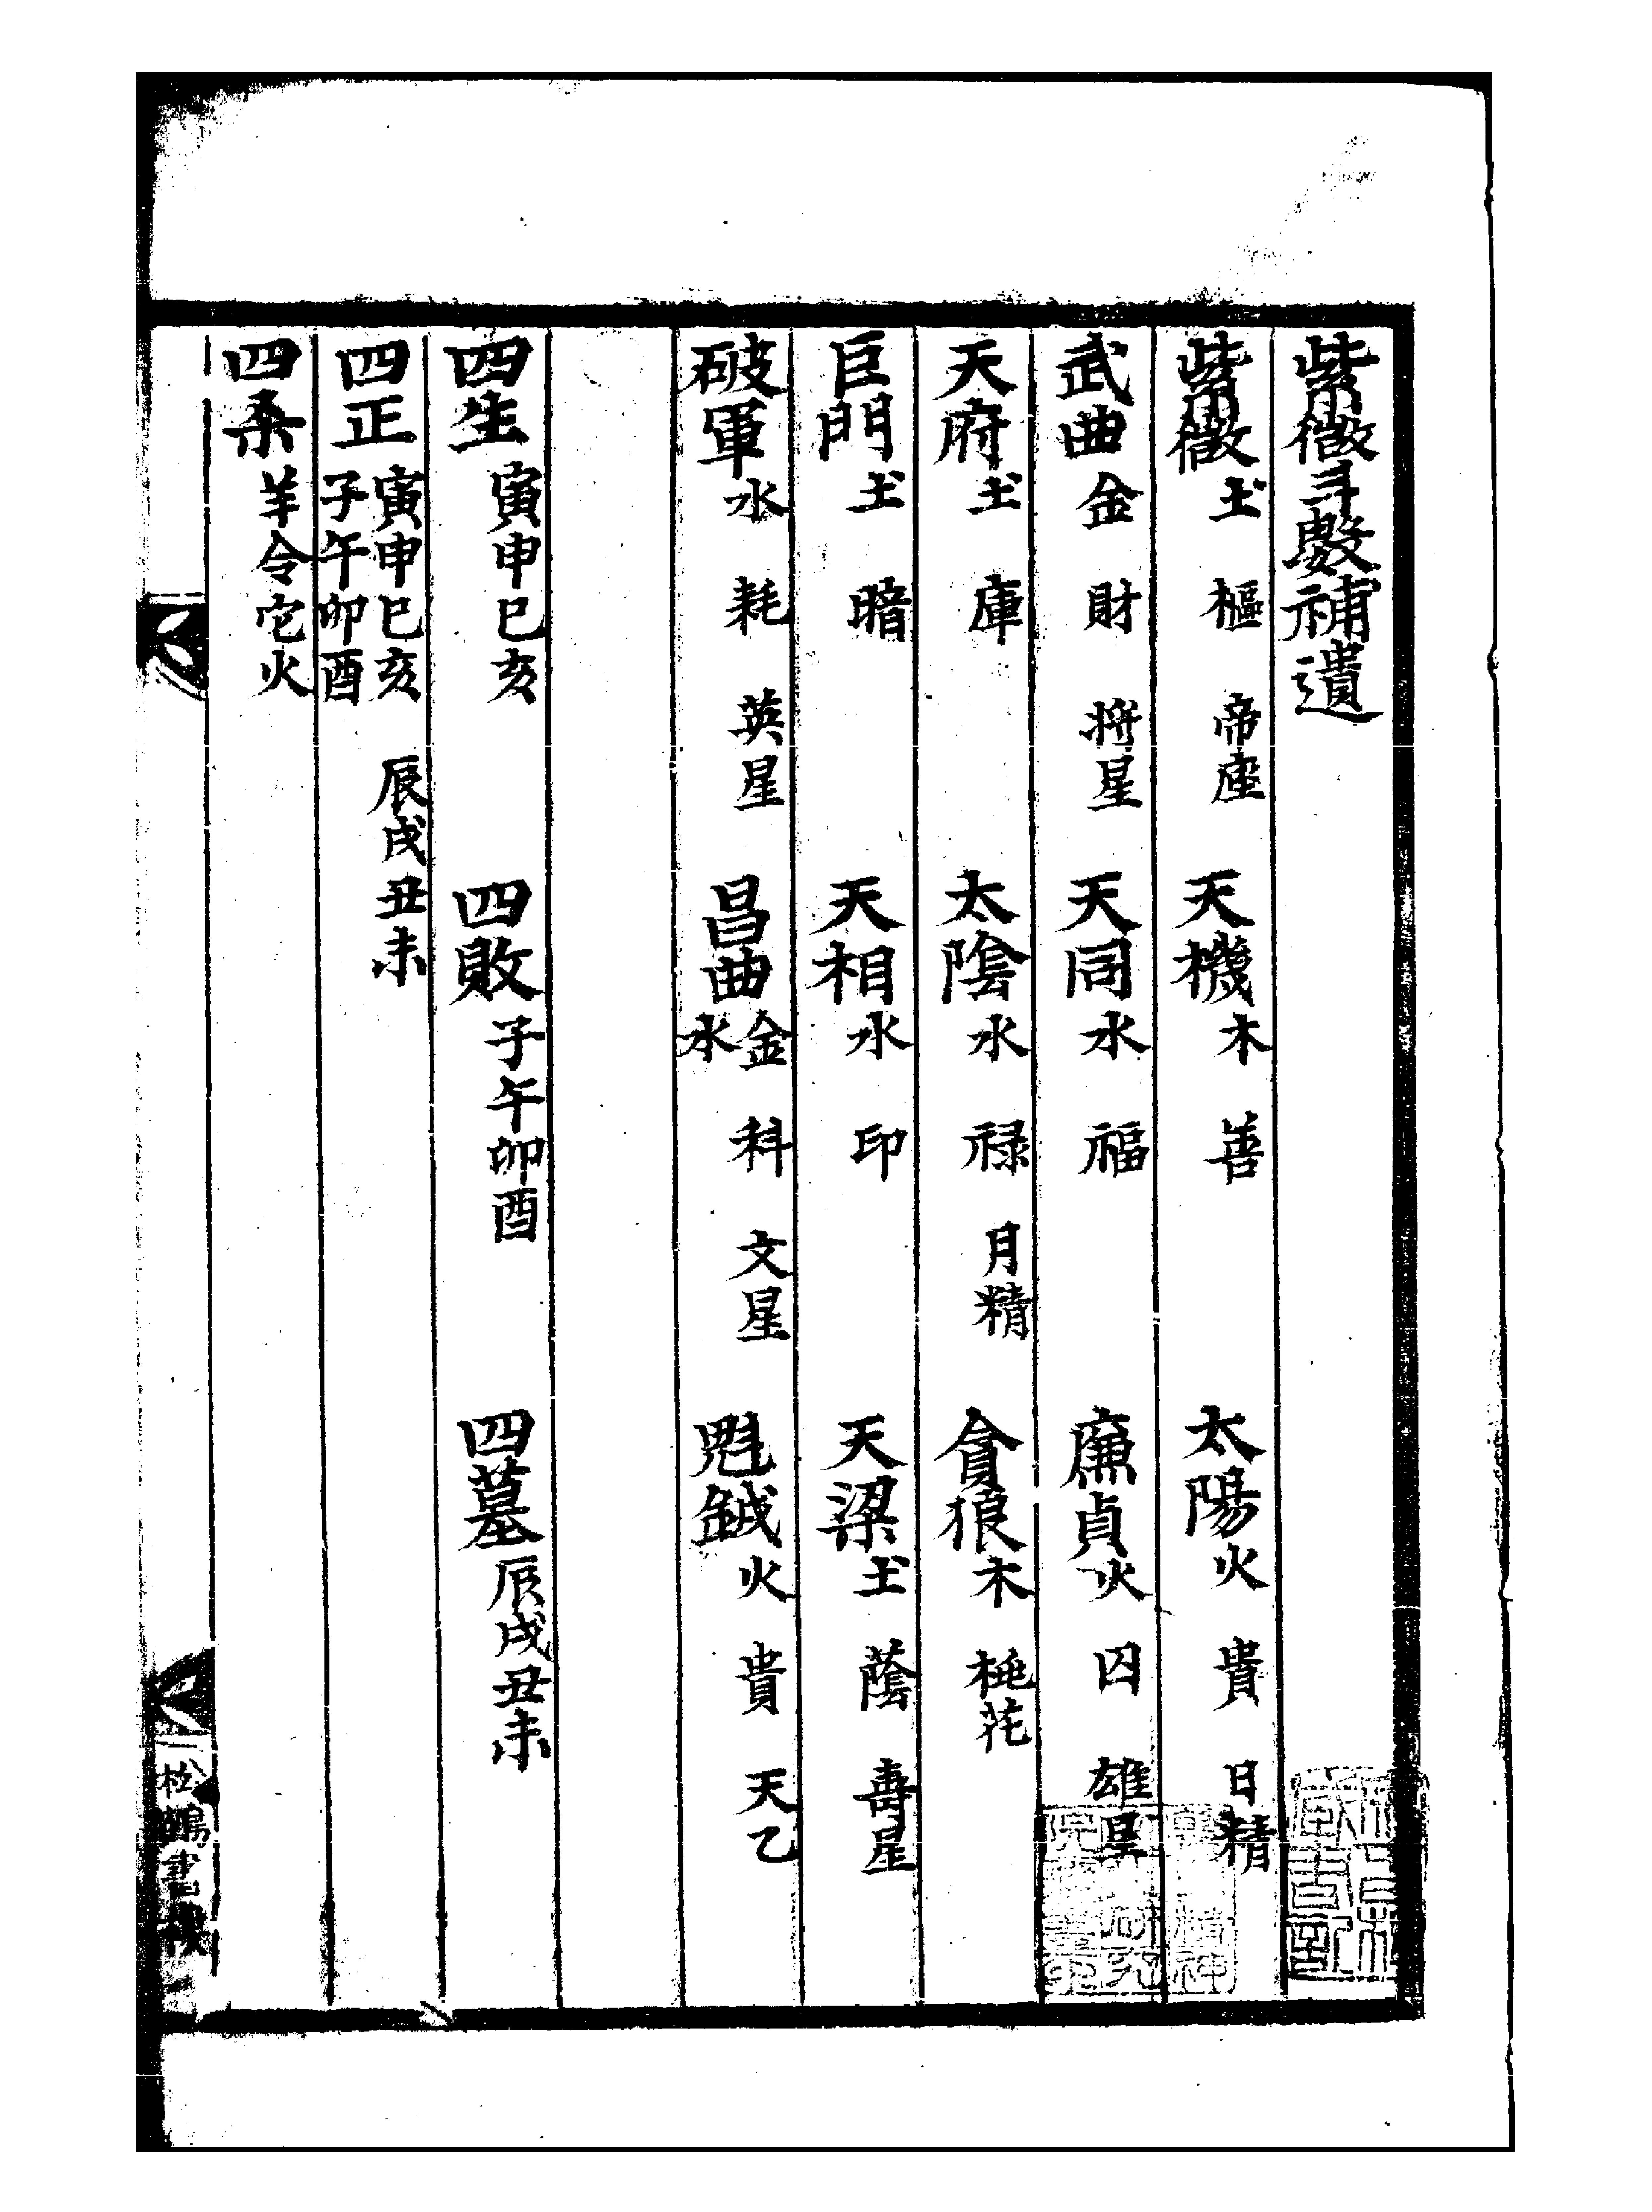 紫微斗數補遺
紫微土　樞　帝座　天機木　善　太陽火　貴　日精
武曲金　財　將星　天同水　福　廉貞火　囚　雄星
天府土　庫　太陰水　祿　月精　貪狼木　桃花
巨門土　暗　天相水　印　天梁土　蔭　壽星
破軍水　耗　英星　昌曲金水　科　文星　魁鉞火　貴　天乙
四生寅申巳亥　四敗子午卯酉　四墓辰戌丑未
四正寅申巳亥子午卯酉　辰戌丑未
四杀羊令它火
松鶴書